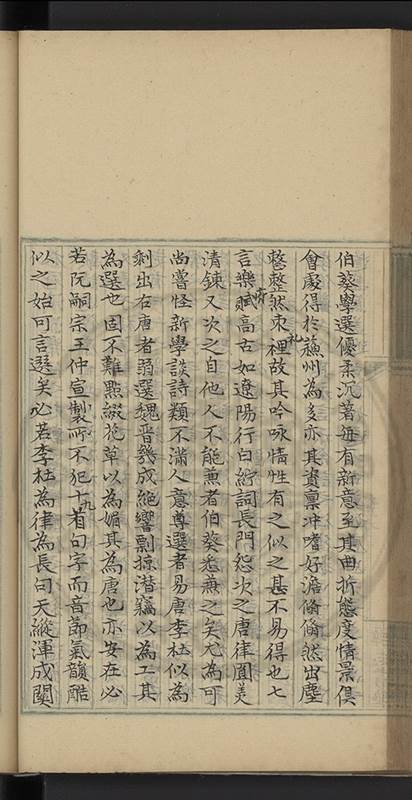 伯葵學選優柔沉著每有新意至其曲折態度情景俱
會處得於蘓州為多亦其資稟冲嗜好澹翛翛然出塵
整整然朿禮故其吟咏情性有之似之甚不易得也七
言樂府賦高古如遼陽行白紵詞長門怨次之唐律圓美
清鍊又次之自他人不能兼者伯葵悉兼之矣尤為可
尚嘗怪新學談詩類不滿人意尊選者易唐李杜似為
剩出右唐者弱選魏晉幾成絕響剽掠潛竊以為工其
為選也固不難點綴花草以為媚其為唐也亦安在必
若阮嗣宗王仲宣製所不犯十九首句字而音節氣韻酷
以之始可言選矣必若李杜為律為長句天縱渾成闗